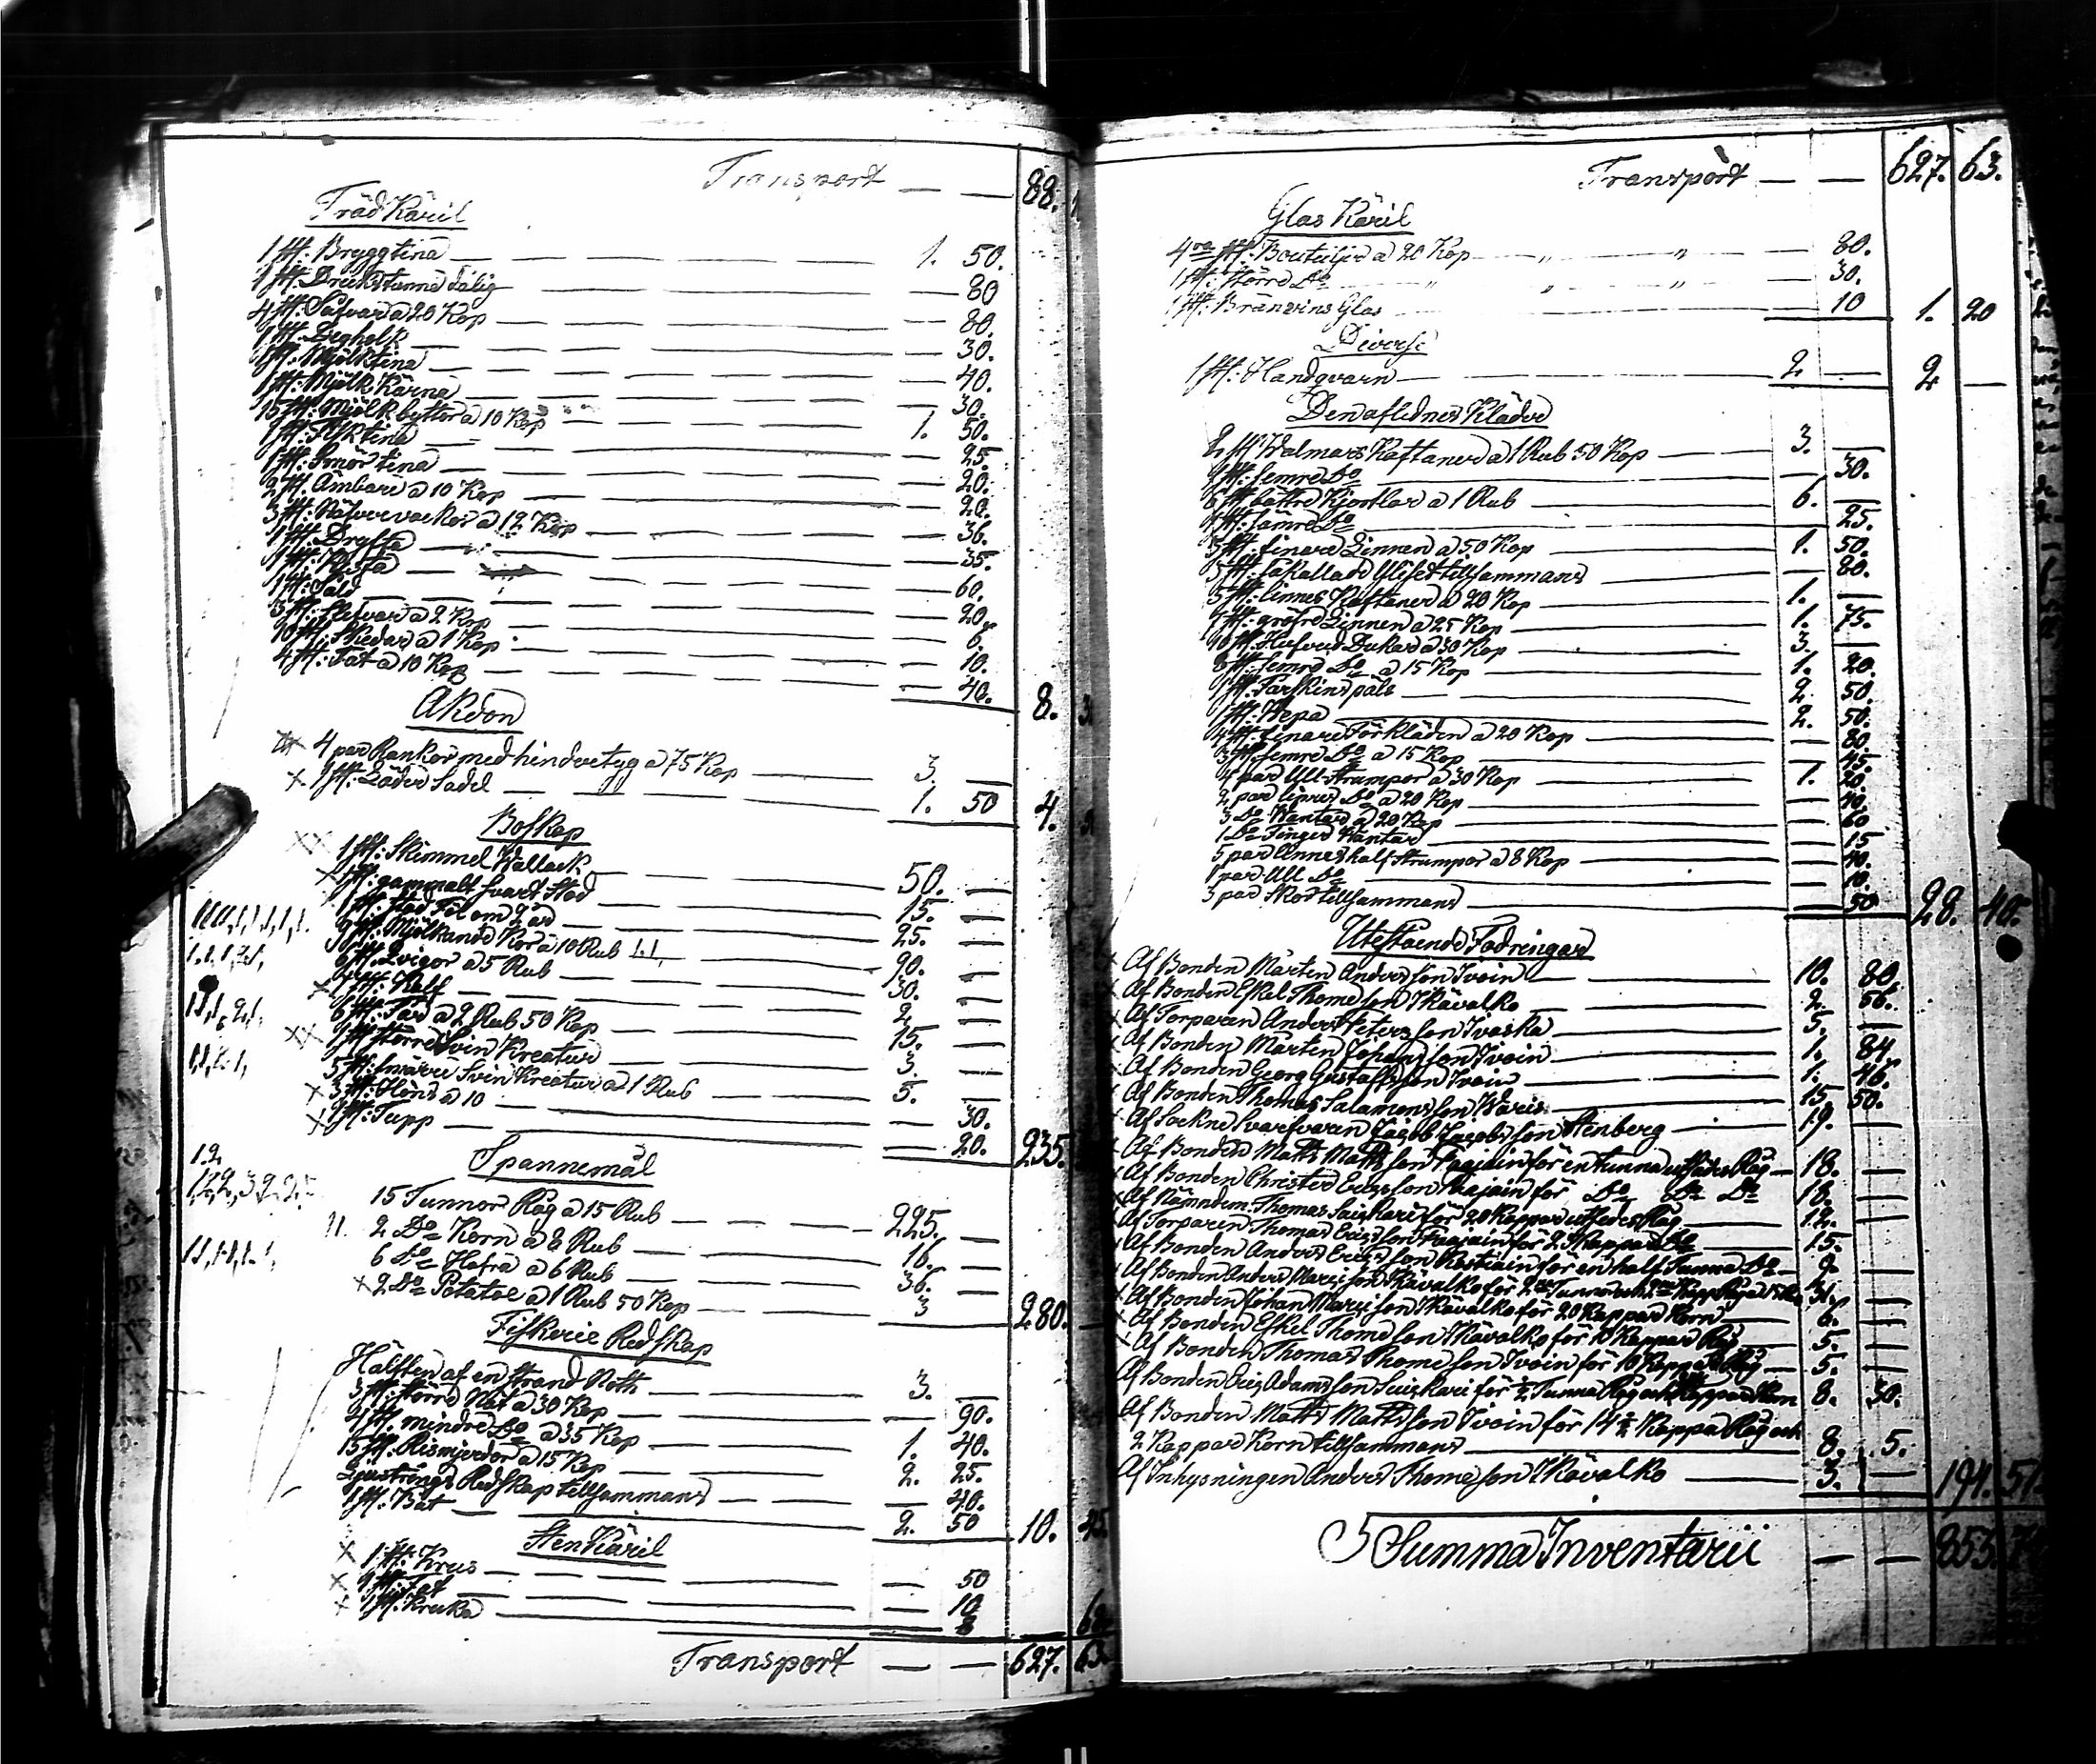 Transport — — 88.
Träd Käril
1 st: Bryggtina — 1. 50.
1 st: Drickstunna dålig — 80
4 st: Såfvar a 20 Kop — 80.
1 st: Degholk — 30.
1 st: Mjölktina — 40.
1 st: Mjölk Kärna — 30.
15 st: Mjölk byttor a 10 Kop 1. 50.
1 st: Fisktina — 25.
1 st: Smör tina — 20.
2 st: Ämbare a 10 Kop — 20.
3 st: a 12 Kop — 36.
1 st: Dryfta — 35.
1 st: — 60.
1 st: Såld — 20.
3 st: Slefvar a 2 Kop — 6.
10 st: Skedar a 1 Kop — 10.
4 st: Fat a 10 Kop — 40. 8.
Akdon
4 par Kankor med hindertyg a 75 Kop — 3. —
1 st: Läder Sadel — 1. 50 4.
Boskap
1 st: Skimmel Wallack — 50. —
1 st: gammalt svart Stod — 15. —
1 st: Stod Föl om 2 år — 25. —
9 st: Mjölkande Kor a 10 Rub — 90. —
6 st: Qvigor a 5 Rub — 30. —
1 st: Kalf — 2 —
6 st: Får a 2 Rub 50 Kop — 15. —
1 st större Svin Kreatur — 3. —
5 st: smärre Svin Kreatur a 1 Rub — 5. —
3 st: Höns a 10 — 30.
1 st: Tupp — 20. 235.
Spannemål
15 Tunnor Råg a 15 Rub — 225. —
2 Do Korn a 8 Rub — 16. —
6 Do Hafra a 6 Rub — 36. —
2 Do Potatoe a 1 Rub 50 Kop — 3 280.
Fiskerie Redskap
Hälften af en Strand Noth — 3. —
3 st: större Nät a 30 Kop — 90.
4 st: mindre Do a 35 Kop — 1. 40.
15 st: Rismjerdor a 15 Kop — 2. 25.
Ljustrings Redskap tillsammans — 40.
1 st: Båt — 2. 50 10. 45.
Sten Käril
1 st: Krus — 50
1 st: Fat — 10
1 st: Kruka — 8
Transport — — 627. 63.
Transport — — 627. 63.
Glas Käril
4ra st: Bouteljer a 20 Kop — 80.
1 st: större Do — 30.
1 st: Bränvins Glas — 10 1. 20
Diverse
1 st: Handqvarn — 2 — 2 —
Den aflidnes Kläder
2 st Walmars Kaftaner a 1 Rub 50 Kop — 3. —
1 st: semre Do — 30.
6 st bättre Kjortlar a 1 Rub — 6. —
1 st: sämre Do — 25.
3 st: finare Linnen a 50 Kop — 1. 50.
3 st: såkallade tillsammans — 80.
5 st: linnes Kaftaner a 20 Kop — 1. —
7 st: gröfre Linnen a 25 Kop — 1. 75.
10 st Hufvud Dukar a 30 Kop — 3. —
8 st: semre Do a 15 Kop — 1. 20.
1 st Fårskins päls — 2. 50.
1 st: Wepa — 2. 50.
4 st: finare Förkläden a 20 Kop — 80.
3 st semre Do a 15 Kop — 45.
4 par Ull Strumpor a 30 Kop — 1. 20.
2 par Do a 20 Kop — 40.
3 Do Wantar a 20 Kop — 60
1 Do Finger Wantar — 15
5 par half Strumpor a 8 Kop — 40.
1 par Ull Do — 10.
3 par Skor tillsammans — 50 28. 40.
Utestående Fodringar
Af Bonden Mårten Andersson Ivoin — 10. 80.
Af Bonden Eskel Thomesson Kävalko — 2. 56.
Af Torparen Anders Petersson Ivaska — 5. —
Af Bonden Mårten Johansson Ivoin — 1. 84.
Af Bonden Georg Gustafsson Ivoin — 1. 46.
Af Bonden Thomas Salamonsson Wäris — 15. 50.
Af Sockne Svarfvaren Jacob Jacobsson Stenberg — 19. —
Af Bonden Matts Mattsson Paajain för en tunna utsädes Råg — 18. —
Af Bonden Christer Ericsson Paajain för Do Do Do 18. —
Af Nämndem. Thomas Suiskari för 20 Kappar utsedes Råg — 12. —
Af Torparen Thomas Ericsson Paajain för 25 Kappar Do — 15. —
Af Bonden Anders Ericsson för en half Tunna Do — 9 —
Af Bonden Anders Kävalko för Tunnor — 31. —
Af Bonden Johan Kävalko för 20 Kappar Korn — 6. —
Af Bonden Eskel Thomesson Kävalko för 10 Kappar Råg — 5. —
Af Bonden Thomas Thomesson Ivoin för 10 Kappar Råg — 5. —
Af Bonden Eric Adamsson Suiskari för ½ Tunna Råg och Kappar Korn 8. 30.
Af Bonden Matts Mattsson Ivoin för 14 ½ Kappa Råg och
2 Kappar Korn tillsammans — 8. 5.
Af Inhysningen Anders Thomesson Kävalko — 3. — 194. 51.
Summa Inventarii — — 853.